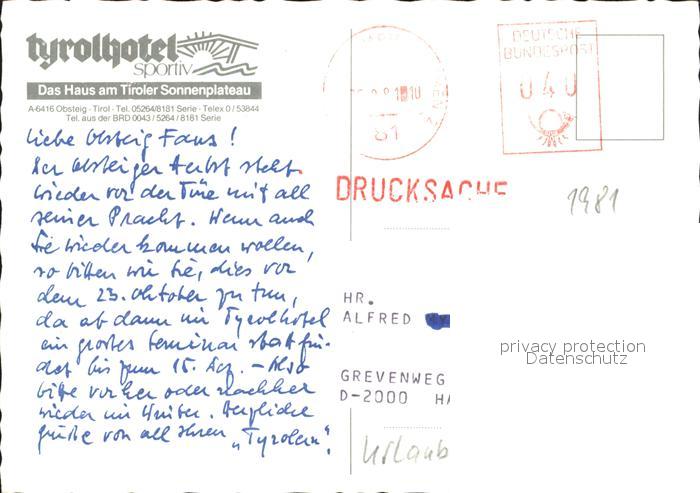 tyrolhotel
sportiv
Das Haus am Tiroler Sonnenplateau
A-6416 Obsteig - Tirol - Tel. 05264/8181 Serie - Telex 0 / 53844
Tel. aus der BRD 0043 / 5264 / 8181 Serie
Liebe Obsteig Fans!
Der Obsteiger Herbst steht
wieder vor der Türe mit all
seiner Pracht. Wenn auch
Sie wieder kommen wollen,
so bitten wir Sie, dies vor
dem 23. Oktober zu tun,
da ab dann im Tyrolhotel
ein grosses Seminar statt fin-
det bis zum 15. Dez. - Also
bitte vorher oder nachher
wieder im Winter. Herzliche
Grüße von all Ihren „Tyrolern".
81
DEUTSCHE
BUNDESPOST
040
DRUCKSACHE
1981
HR.
ALFRED
GREVENWEG
D-2000 HA
Urlaub
privacy protection
Datenschutz